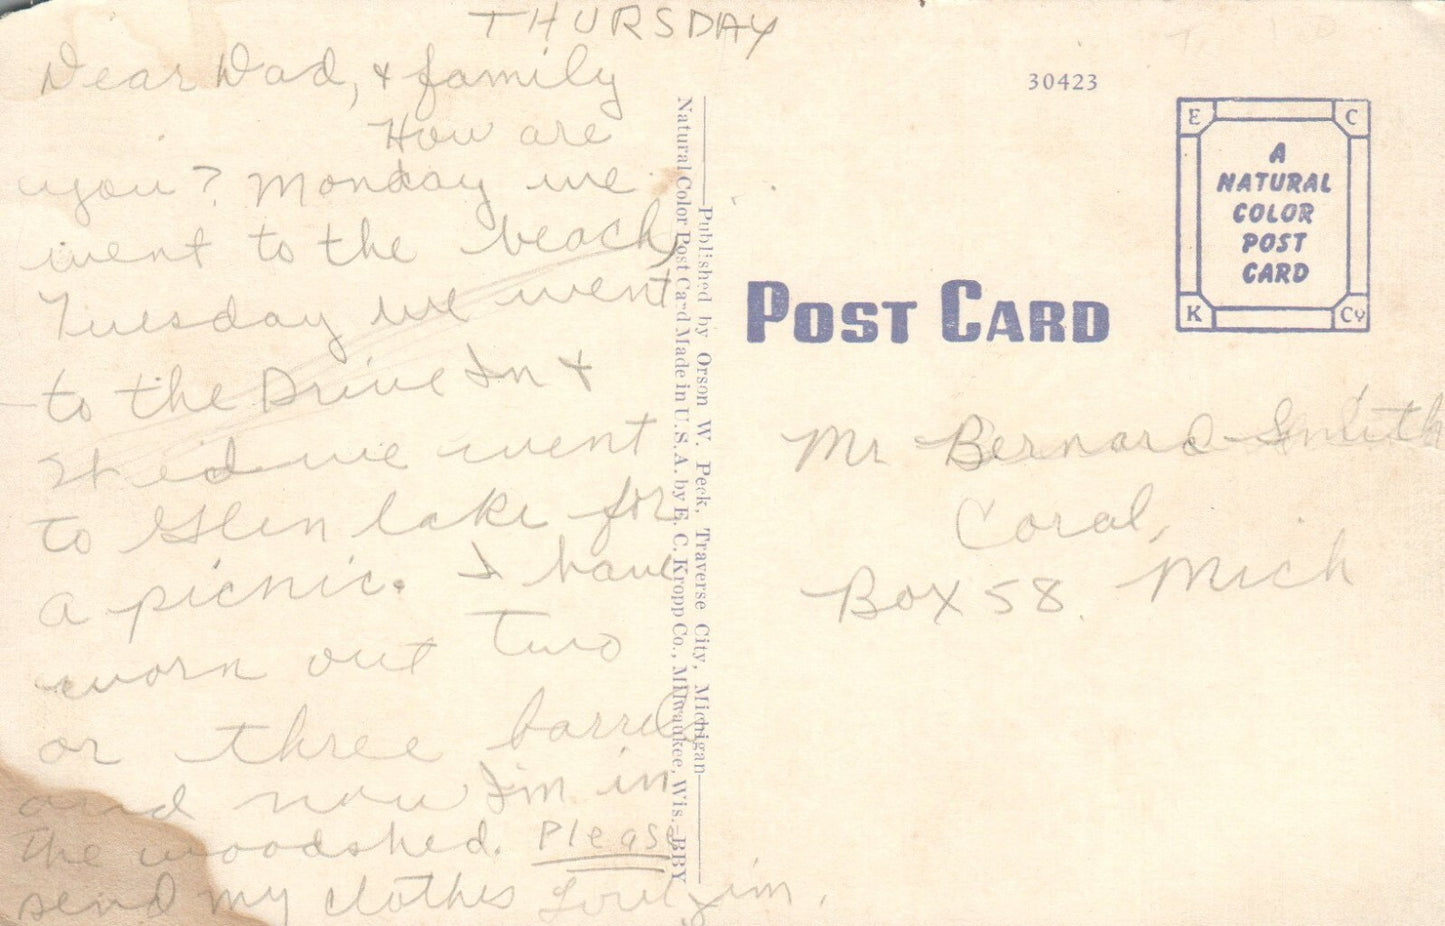 THURSDAY
Dear Dad, & family
How are
you? Monday we
went to the beach,
Tuesday we went
to the Drive In &
we went
to Glen lake for
a picnic. I have
worn out two
or three barrels
and now I'm in
the woodshed. Please
send my clothes Love Jim.
Natural Color Post Card Made in U.S.A. by E. C. Kropp Co., Milwaukee, Wis.-BBY
Published by Orson W. Peck, Traverse City, Michigan
30423
E C
A
NATURAL
COLOR
POST
CARD
K Co
POST CARD
Mr Bernard Smith
Coral,
Mich
Box 58.